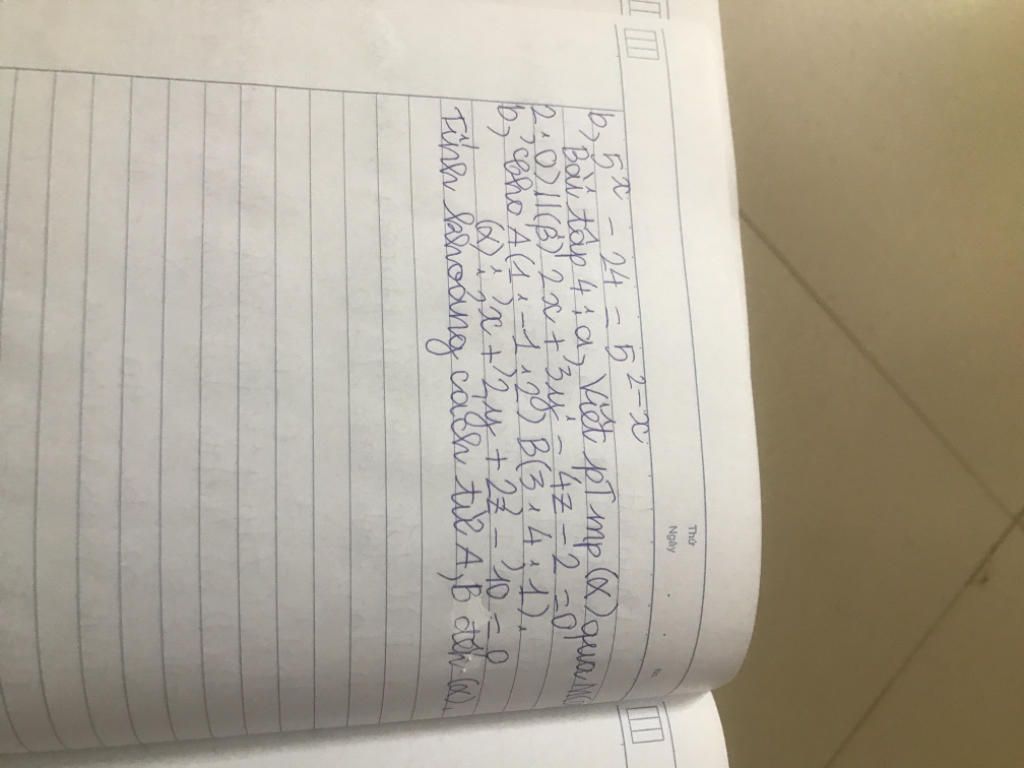 Thứ
Ngày
b, 5^x - 24 = 5^{2-x}
Bài tập 4: a, Viết pT mp (α) qua M(
2; 0) // (β) 2x + 3y - 4z - 2 = 0
b, cho A(1; -1; 2) B(3; 4; 1).
(α): x + 2y + 2z - 10 = 0
Tính khoảng cách từ A, B đến (α)